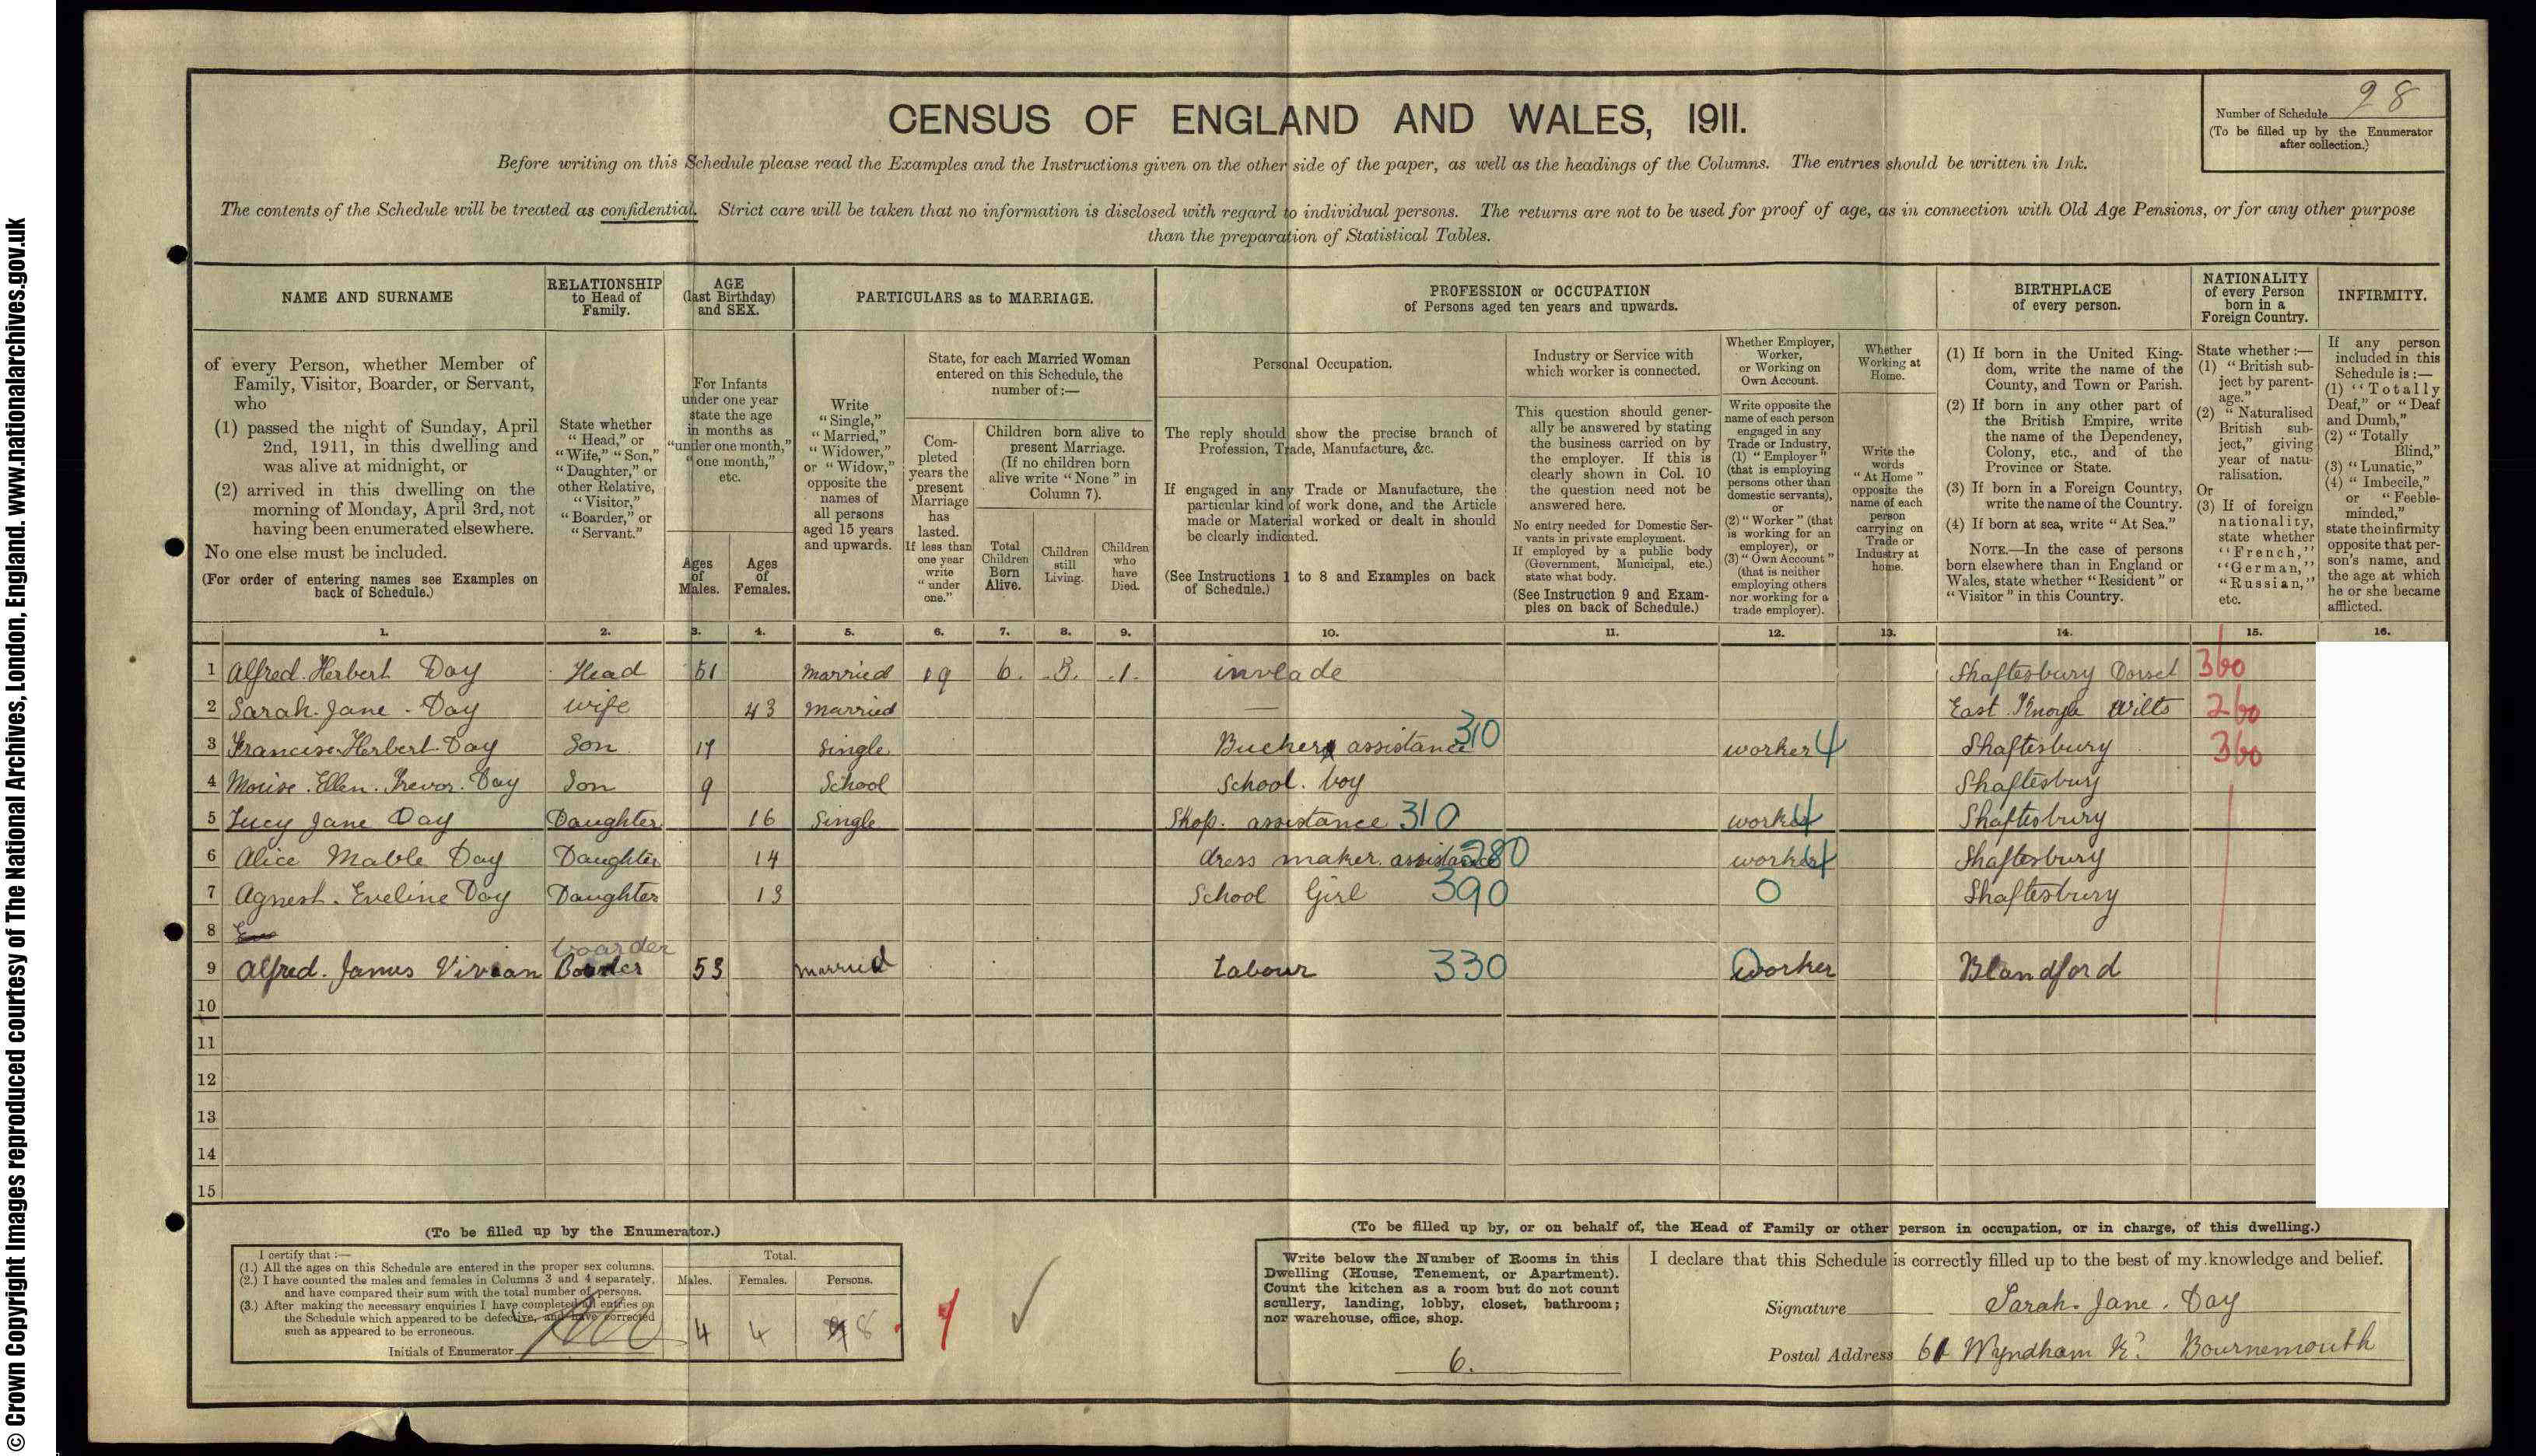 © Crown Copyright Images reproduced courtesy of The National Archives, London, England. www.nationalarchives.gov.uk
CENSUS OF ENGLAND AND WALES, 1911.
Number of Schedule 98
(To be filled up by the Enumerator
after collection.)
Before writing on this Schedule please read the Examples and the Instructions given on the other side of the paper, as well as the headings of the Columns. The entries should be written in Ink.
The contents of the Schedule will be treated as confidential. Strict care will be taken that no information is disclosed with regard to individual persons. The returns are not to be used for proof of age, as in connection with Old Age Pensions, or for any other purpose
than the preparation of Statistical Tables.
NAME AND SURNAME
of every Person, whether Member of
Family, Visitor, Boarder, or Servant,
who
(1) passed the night of Sunday, April
2nd, 1911, in this dwelling and
was alive at midnight, or
(2) arrived in this dwelling on the
morning of Monday, April 3rd, not
having been enumerated elsewhere.
No one else must be included.
(For order of entering names see Examples on
back of Schedule.)
RELATIONSHIP
to Head of
Family.
State whether
"Head," or
"Wife," "Son,"
"Daughter," or
other Relative,
"Visitor,"
"Boarder," or
"Servant."
AGE
(last Birthday)
and SEX.
For Infants
under one year
state the age
in months as
"under one month,"
"one month,"
etc.
Ages
of
Males.
Ages
of
Females.
PARTICULARS as to MARRIAGE.
Write
"Single,"
"Married,"
"Widower,"
or "Widow,"
opposite the
names of
all persons
aged 15 years
and upwards.
State, for each Married Woman
entered on this Schedule, the
number of:—
Com-
pleted
years the
present
Marriage
has
lasted.
If less than
one year
write
"under
one."
Children born alive to
present Marriage.
(If no children born
alive write "None" in
Column 7).
Total
Children
Born
Alive.
Children
still
Living.
Children
who
have
Died.
PROFESSION or OCCUPATION
of Persons aged ten years and upwards.
Personal Occupation.
The reply should show the precise branch of
Profession, Trade, Manufacture, &c.
If engaged in any Trade or Manufacture, the
particular kind of work done, and the Article
made or Material worked or dealt in should
be clearly indicated.
(See Instructions 1 to 8 and Examples on back
of Schedule.)
Industry or Service with
which worker is connected.
This question should gener-
ally be answered by stating
the business carried on by
the employer. If this is
clearly shown in Col. 10
the question need not be
answered here.
No entry needed for Domestic Ser-
vants in private employment.
If employed by a public body
(Government, Municipal, etc.)
state what body.
(See Instruction 9 and Exam-
ples on back of Schedule.)
Whether Employer,
Worker,
or Working on
Own Account.
Write opposite the
name of each person
engaged in any
Trade or Industry,
(1) "Employer"
(that is employing
persons other than
domestic servants),
or
(2) "Worker" (that
is working for an
employer), or
(3) "Own Account"
(that is neither
employing others
nor working for a
trade employer).
Whether
Working at
Home.
Write the
words
"At Home"
opposite the
name of each
person
carrying on
Trade or
Industry at
home.
BIRTHPLACE
of every person.
(1) If born in the United King-
dom, write the name of the
County, and Town or Parish.
(2) If born in any other part of
the British Empire, write
the name of the Dependency,
Colony, etc., and of the
Province or State.
(3) If born in a Foreign Country,
write the name of the Country.
(4) If born at sea, write "At Sea."
NOTE.—In the case of persons
born elsewhere than in England or
Wales, state whether "Resident" or
"Visitor" in this Country.
NATIONALITY
of every Person
born in a
Foreign Country.
State whether:—
(1) "British sub-
ject by parent-
age."
(2) "Naturalised
British sub-
ject," giving
year of natu-
ralisation.
Or
(3) If of foreign
nationality,
state whether
"French,"
"German,"
"Russian,"
etc.
INFIRMITY.
If any person
included in this
Schedule is:—
(1) "Totally
Deaf," or "Deaf
and Dumb,"
(2) "Totally
Blind,"
(3) "Lunatic,"
(4) "Imbecile,"
or "Feeble-
minded,"
state the infirmity
opposite that per-
son's name, and
the age at which
he or she became
afflicted.
1. 2. 3. 4. 5. 6. 7. 8. 9. 10. 11. 12. 13. 14. 15. 16.
1 Alfred. Herbert Day Head 51 Married 19 6. 5. 1. invlade Shaftesbury Dorset 360
2 Sarah. Jane - Day wife 43 Married — East Knoyle Wilts 260
3 Francise. Herbert Day Son 17 Single Bucher assistance 310 worker 4 Shaftesbury 360
4 Morise. Ellen. Trevor. Day Son 9 School School. boy Shaftesbury
5 Lucy Jane Day Daughter 16 Single Shop. assistance 310 worker 4 Shaftesbury
6 Alice Mable Day Daughter 14 dress maker. assistance 280 worker 4 Shaftesbury
7 Agnest. Eveline Day Daughter 13 School Girl 390 0 Shaftesbury
8
boarder
9 Alfred. James Vivian 53 married Labour 330 worker Blandford
10
11
12
13
14
15
(To be filled up by the Enumerator.)
I certify that:—
(1.) All the ages on this Schedule are entered in the proper sex columns.
(2.) I have counted the males and females in Columns 3 and 4 separately,
and have compared their sum with the total number of persons.
(3.) After making the necessary enquiries I have completed all entries on
the Schedule which appeared to be defective, and have corrected
such as appeared to be erroneous.
Initials of Enumerator
Total.
Males. Females. Persons.
4 4 8
(To be filled up by, or on behalf of, the Head of Family or other person in occupation, or in charge, of this dwelling.)
Write below the Number of Rooms in this
Dwelling (House, Tenement, or Apartment).
Count the kitchen as a room but do not count
scullery, landing, lobby, closet, bathroom;
nor warehouse, office, shop.
6.
I declare that this Schedule is correctly filled up to the best of my knowledge and belief.
Signature Sarah. Jane. Day
Postal Address 61 Wyndham Rd Bournemouth